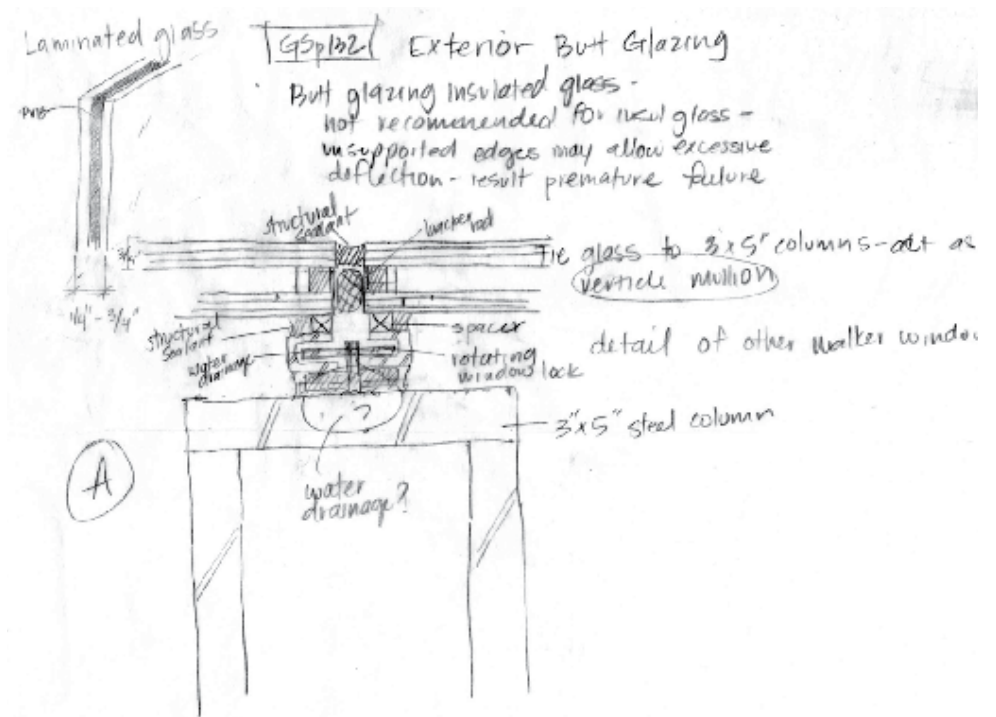 Laminated glass
GSp132 Exterior Butt Glazing
PVB
Butt glazing insulated glass -
not recommended for insul glass -
unsupported edges may allow excessive
deflection - result premature failure
structural
sealant
backer
rod
3/4"
Tie glass to 3"x5" columns - act as
verticle mullion
1/4" - 3/4"
structural
sealant
spacer
water
drainage
rotating
window lock
detail of other walker window
3"x5" steel column
A
?
water
drainage?